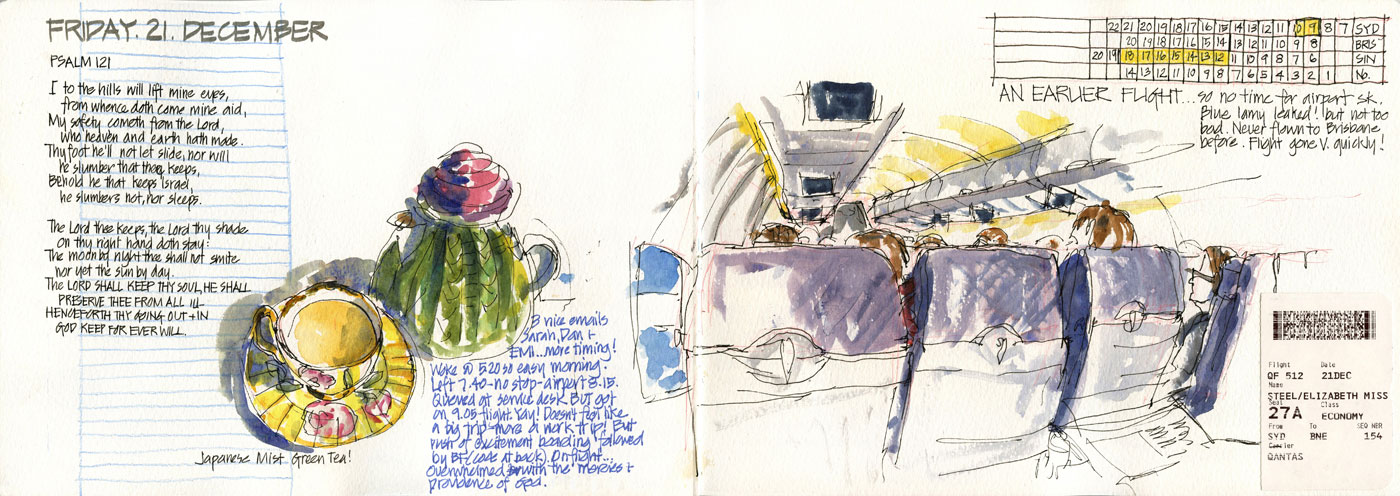 FRIDAY. 21. DECEMBER
PSALM 121
I to the hills will lift mine eyes,
from whence doth come mine aid,
My safety cometh from the Lord,
who heaven and earth hath made.
Thy foot he'll not let slide, nor will
he slumber that thee keeps,
Behold he that keeps Israel,
he slumbers not, nor sleeps.
The Lord thee keeps, the Lord thy shade
on thy right hand doth stay:
The moon by night thee shall not smite
nor yet the sun by day.
The LORD SHALL KEEP THY SOUL, HE SHALL
PRESERVE THEE FROM ALL ILL
HENCEFORTH THY GOING OUT + IN
GOD KEEP FOR EVER WILL.
Japanese Mist Green Tea!
3 nice emails
Sarah, Dan +
EMI... more timing!
Woke @ 5.20 so easy morning.
Left 7.40 - no stop - airport 8.15.
Queued at service desk. But got
on 9.05 flight. Yay! Doesn't feel like
a big trip - more a work trip! But
rush of excitement boarding followed
by BF (cade at back). On flight...
overwhelmed with the mercies +
providence of God.
22 21 20 19 18 17 16 15 14 13 12 11 10 9 8 7 SYD
20 19 18 17 16 15 14 13 12 11 10 9 8 BRIS
20 19 18 17 16 15 14 13 12 11 10 9 8 7 6 SIN
14 13 12 11 10 9 8 7 6 5 4 3 2 1 No.
AN EARLIER FLIGHT... so no time for airport sk.
Blue lamy leaked! but not too
bad. Never flown to Brisbane
before. Flight gone v. quickly!
Flight Date
QF 512 21DEC
Name
STEEL/ELIZABETH MISS
Seat Class
27A ECONOMY
From To SEQ NBR
SYD BNE 154
Carrier
QANTAS